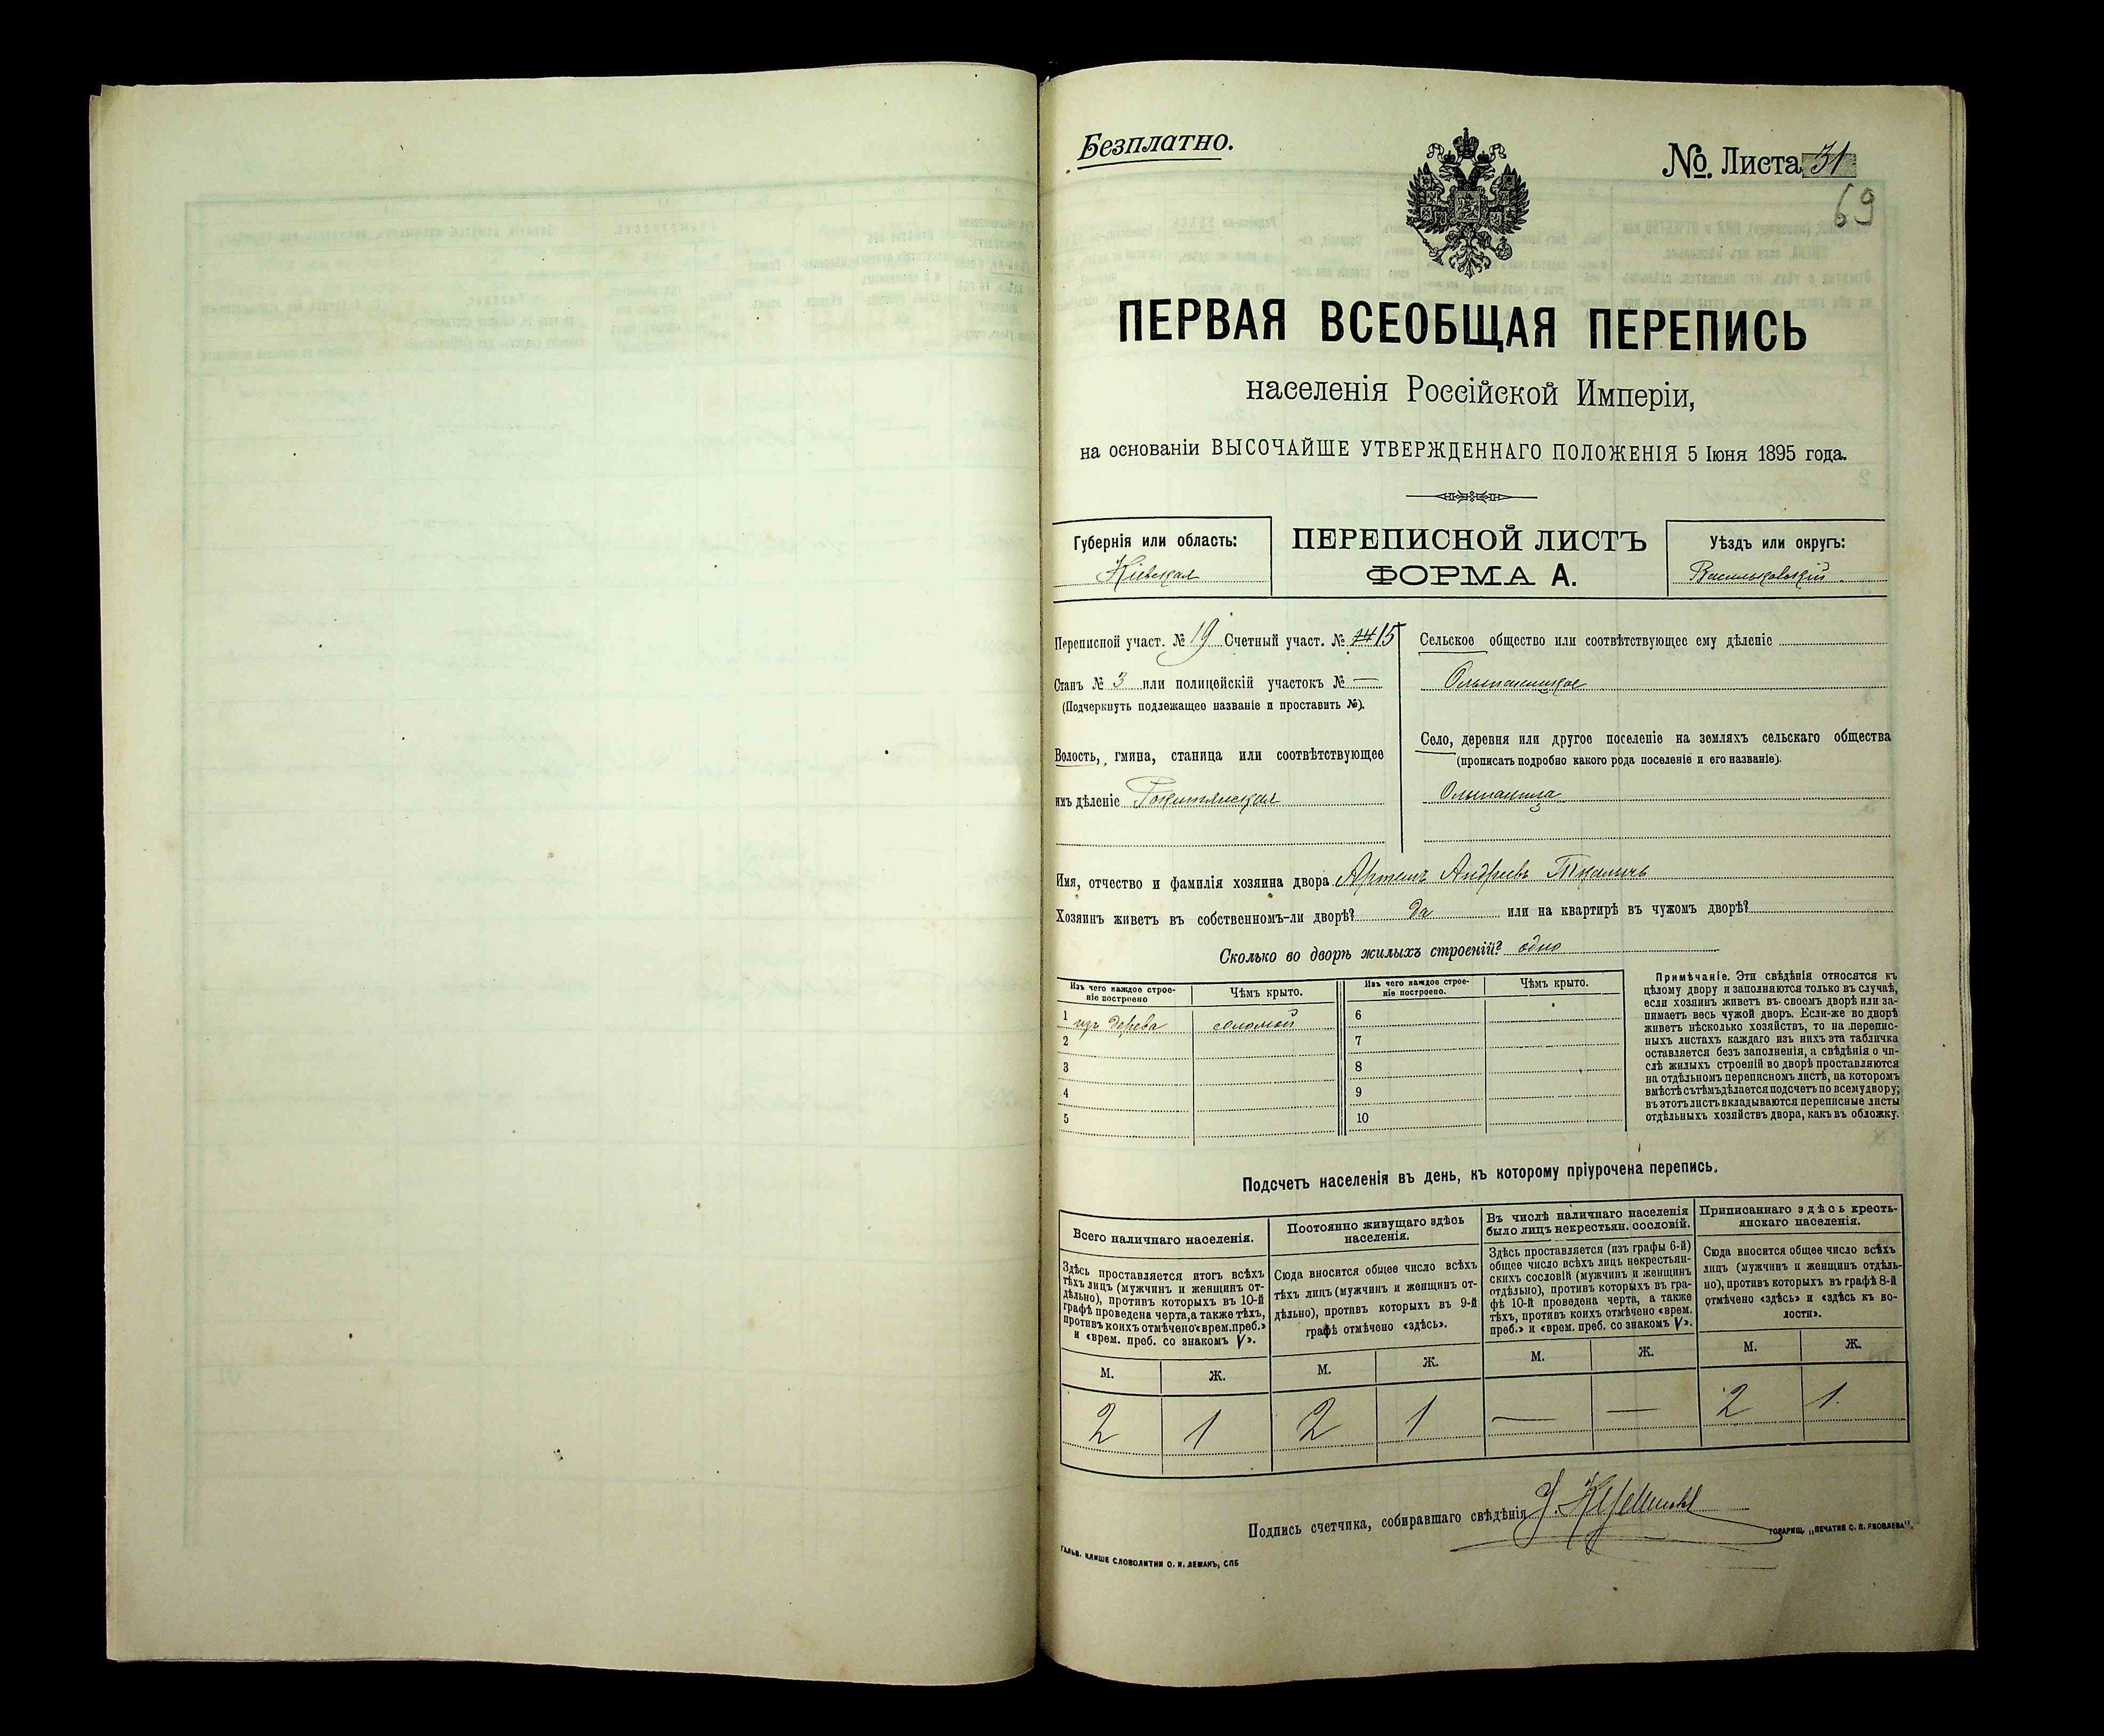 Безплатно.
№. Листа 31
69
ПЕРВАЯ ВСЕОБЩАЯ ПЕРЕПИСЬ
населенія Россійской Имперіи,
на основаніи ВЫСОЧАЙШЕ УТВЕРЖДЕННАГО ПОЛОЖЕНІЯ 5 Іюня 1895 года.
Губернія или область:
Кіевская
ПЕРЕПИСНОЙ ЛИСТЪ
ФОРМА А.
Уѣздъ или округъ:
Васильковскій
Переписной участ. № 19 Счетный участ. № 14 15
Станъ № 3 или полицейскій участокъ № —
(Подчеркнуть подлежащее названіе и проставить №).
Волость, гмина, станица или соотвѣтствующее
имъ дѣленіе Рокитянская
Сельское общество или соотвѣтствующее ему дѣленіе
Ольшаницкое
Село, деревня или другое поселеніе на земляхъ сельскаго общества
(прописать подробно какого рода поселеніе и его названіе).
Ольшаница
Имя, отчество и фамилія хозяина двора Артемъ Андреевъ Ткаличъ
Хозяинъ живетъ въ собственномъ-ли дворѣ? да или на квартирѣ въ чужомъ дворѣ?
Сколько во дворѣ жилыхъ строеній? одно
Изъ чего каждое строе-
ніе построено
Чѣмъ крыто.
Изъ чего каждое строе-
ніе построено.
Чѣмъ крыто.
1 изъ дерева соломой 6
2 7
3 8
4 9
5 10
Примѣчаніе. Эти свѣдѣнія относятся къ
цѣлому двору и заполняются только въ случаѣ,
если хозяинъ живетъ въ своемъ дворѣ или за-
нимаетъ весь чужой дворъ. Если-же во дворѣ
живетъ нѣсколько хозяйствъ, то на перепис-
ныхъ листахъ каждаго изъ нихъ эта табличка
оставляется безъ заполненія, а свѣдѣнія о чи-
слѣ жилыхъ строеній во дворѣ проставляются
на отдѣльномъ переписномъ листѣ, на которомъ
вмѣстѣ съ тѣмъ дѣлается подсчетъ по всему двору;
въ этотъ листъ вкладываются переписные листы
отдѣльныхъ хозяйствъ двора, какъ въ обложку.
Подсчетъ населенія въ день, къ которому пріурочена перепись.
Всего наличнаго населенія.
Здѣсь проставляется итогъ всѣхъ
тѣхъ лицъ (мужчинъ и женщинъ от-
дѣльно), противъ которыхъ въ 10-й
графѣ проведена черта, а также тѣхъ,
противъ коихъ отмѣчено «врем. преб.»
и «врем. преб. со знакомъ V».
Постоянно живущаго здѣсь
населенія.
Сюда вносится общее число всѣхъ
тѣхъ лицъ (мужчинъ и женщинъ от-
дѣльно), противъ которыхъ въ 9-й
графѣ отмѣчено «здѣсь».
Въ числѣ наличнаго населенія
было лицъ некрестьян. сословій.
Здѣсь проставляется (изъ графы 6-й)
общее число всѣхъ лицъ некрестьян-
скихъ сословій (мужчинъ и женщинъ
отдѣльно), противъ которыхъ въ гра-
фѣ 10-й проведена черта, а также
тѣхъ, противъ коихъ отмѣчено «врем.
преб.» и «врем. преб. со знакомъ V».
Приписаннаго здѣсь кресть-
янскаго населенія.
Сюда вносится общее число всѣхъ
лицъ (мужчинъ и женщинъ отдѣль-
но), противъ которыхъ въ графѣ 8-й
отмѣчено «здѣсь» и «здѣсь къ во-
лости».
М. Ж. М. Ж. М. Ж. М. Ж.
2 1 2 1 — — 2 1
Подпись счетчика, собиравшаго свѣдѣнія
ГАЛЬВ. КЛИШЕ СЛОВОЛИТНИ О. И. ЛЕМАНЪ, СПБ
ТОВАРИЩ. „ПЕЧАТНЯ С. П. ЯКОВЛЕВА".